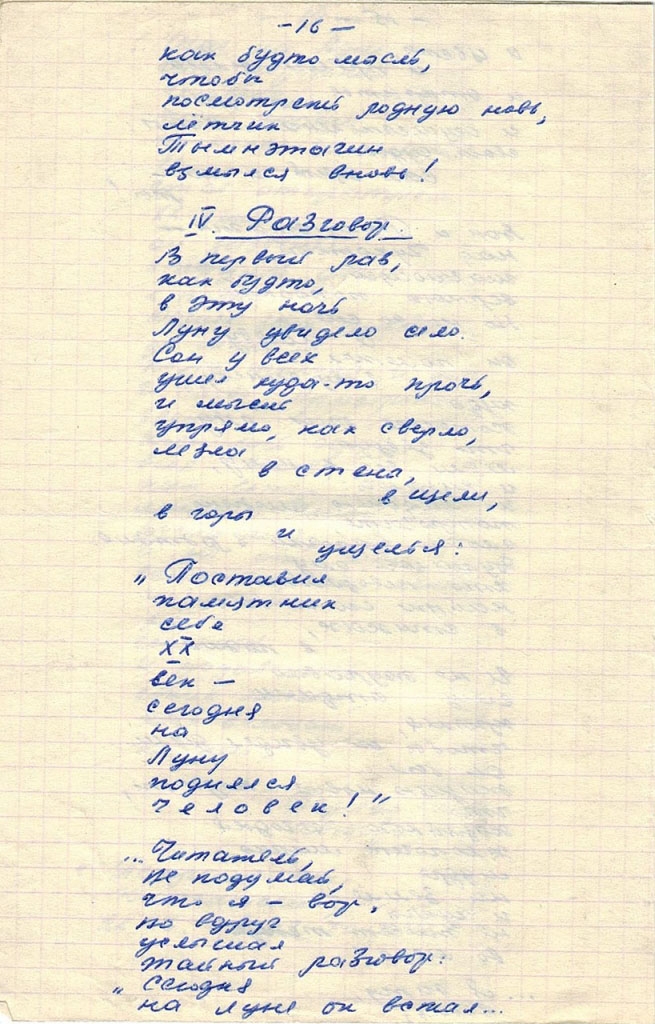 -16-
как будто мысль,
чтобы
посмотреть родную новь,
лётчик
Тымнэтагин
взмылся вновь!
IV. Разговор.
В первый раз,
как будто,
в эту ночь
Луну увидело село.
Сон у всех
ушел куда-то прочь,
и мысль
упрямо, как сверло,
лезла
в стены,
в щели,
в горы
и
ущелья:
„Поставил
памятник
себе
XX
век —
сегодня
на
Луну
поднялся
человек!"
...Читатель,
не подумай,
что я – вор,
но вдруг
услышал
тайный разговор:
„Сегодня
на луне он встал...